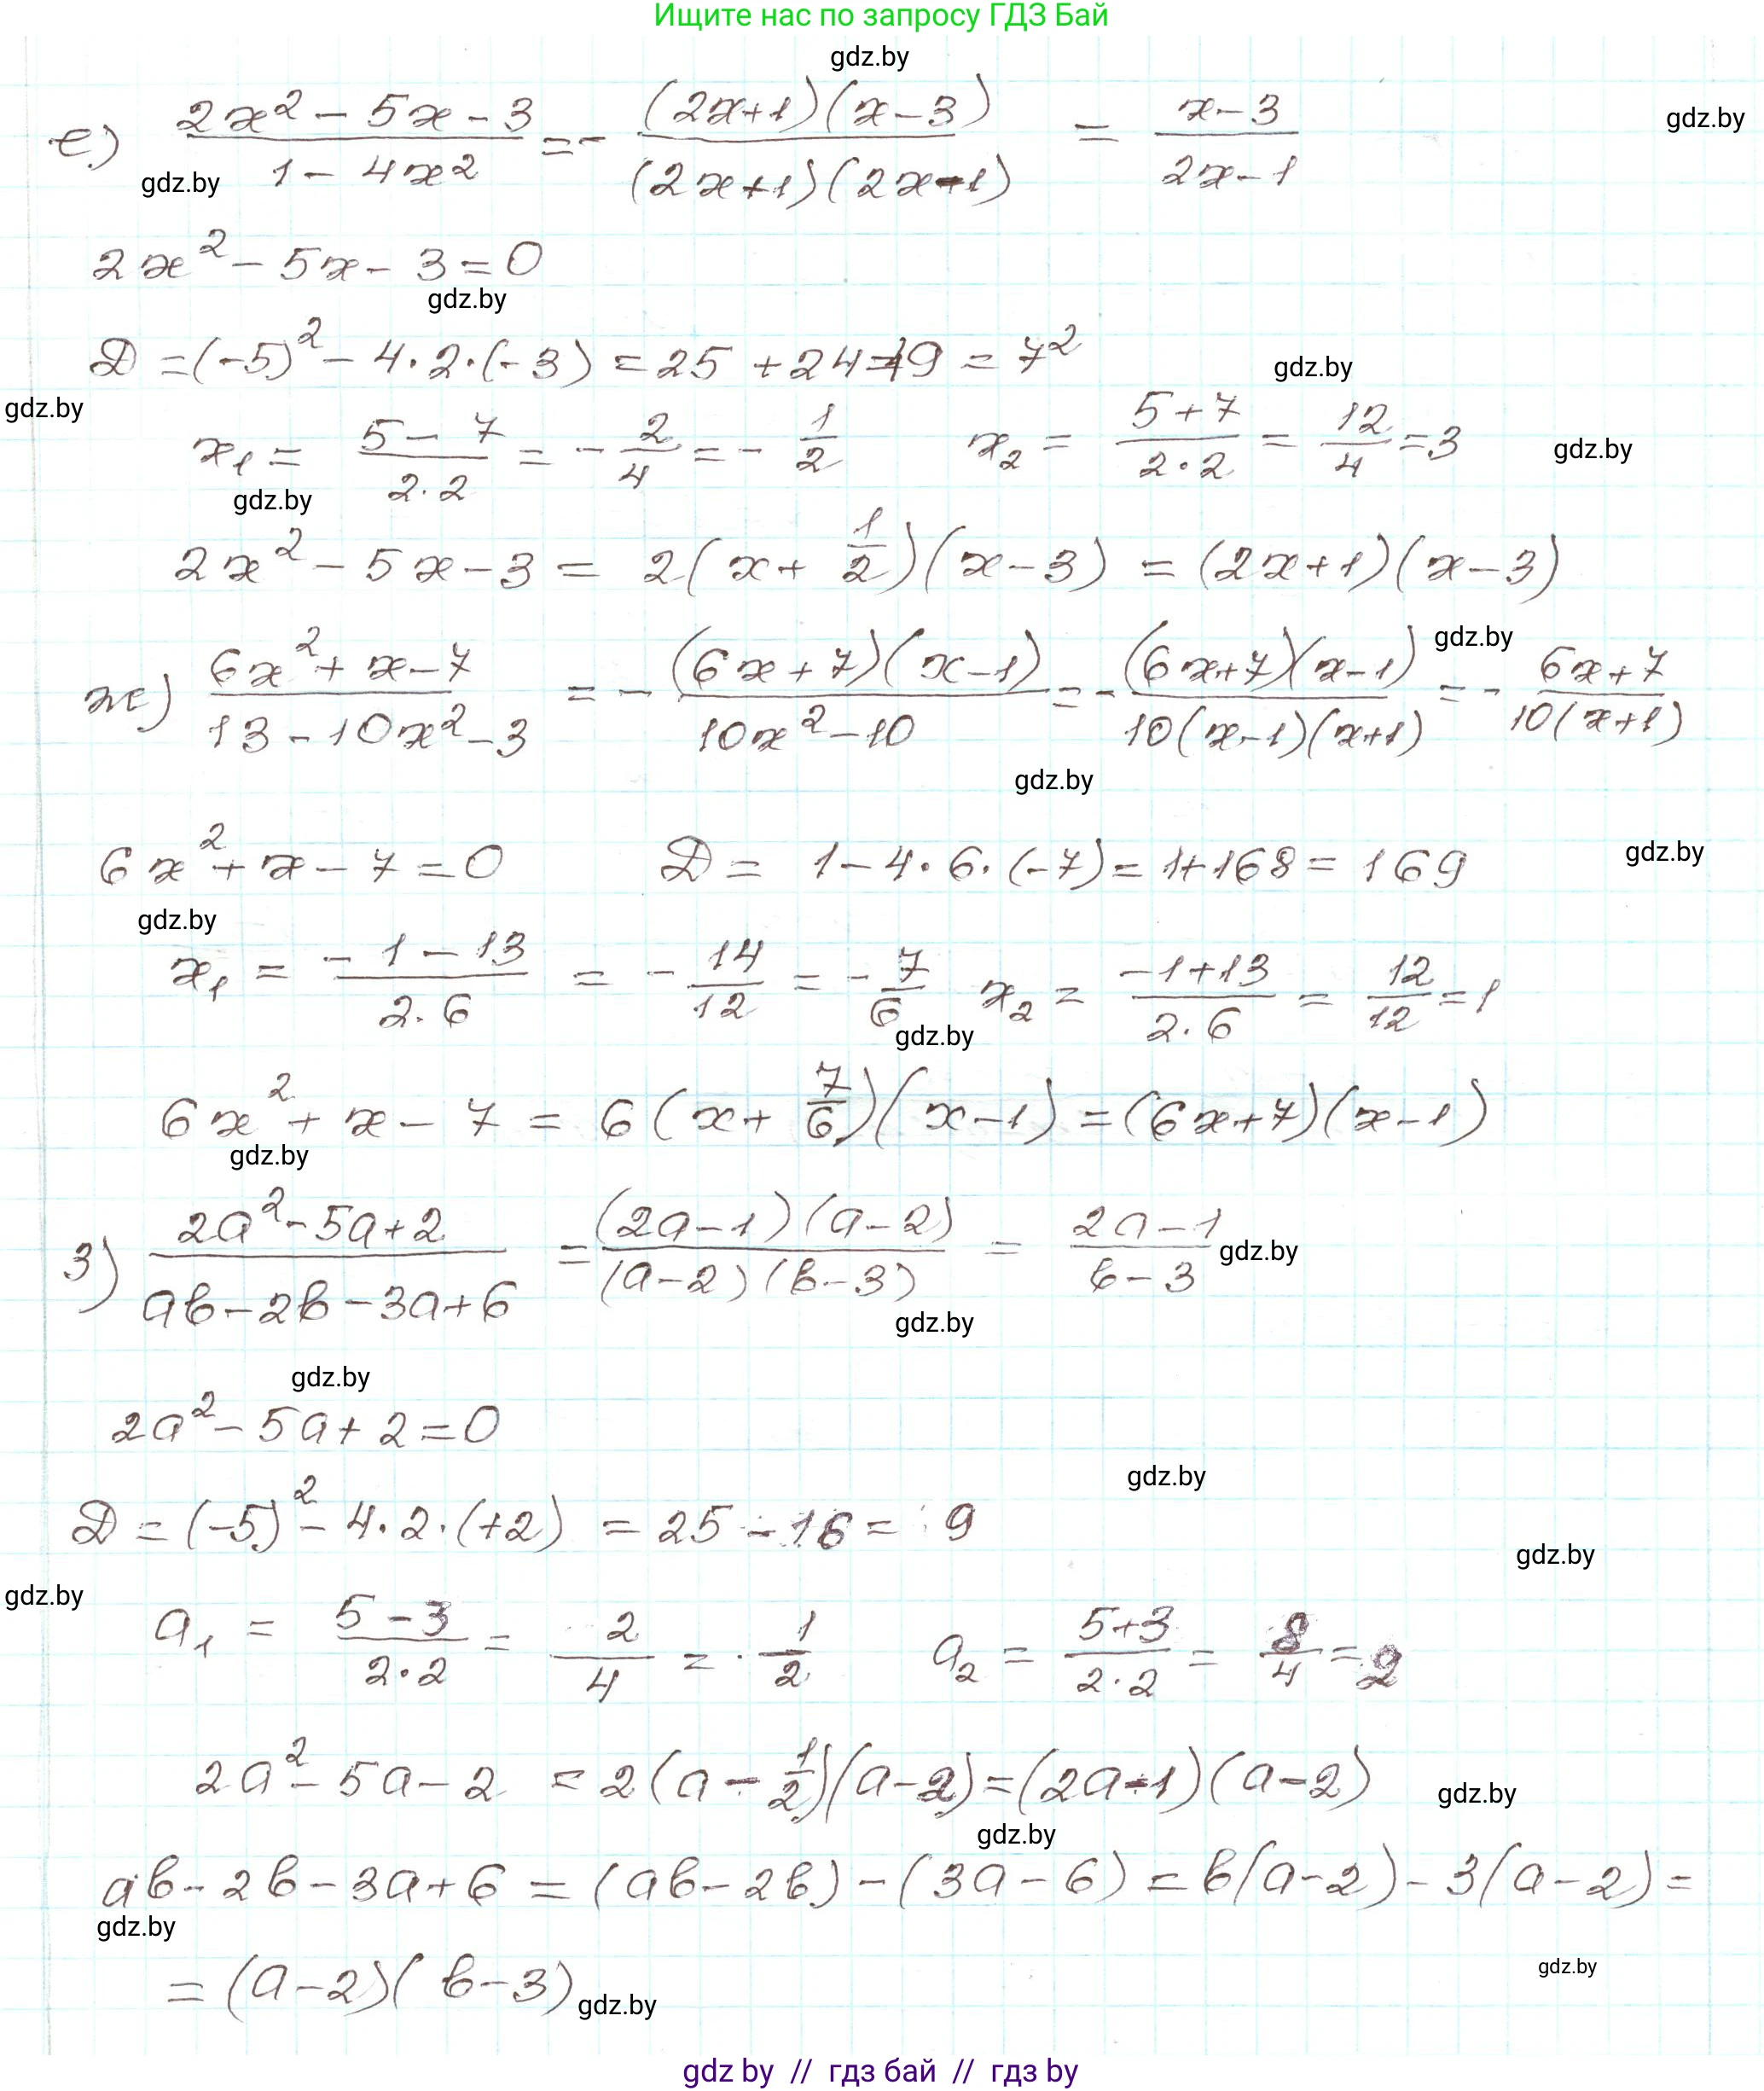 Ищите нас по запросу ГДЗ Бай
gdz.by
е) (2x² - 5x - 3)/(1 - 4x²) = - ((2x+1)(x-3))/((2x+1)(2x-1)) = (x-3)/(2x-1)
gdz.by
gdz.by
2x² - 5x - 3 = 0
gdz.by
D = (-5)² - 4·2·(-3) = 25 + 24 = 49 = 7²
gdz.by
gdz.by
x₁ = (5-7)/(2·2) = - 2/4 = - 1/2 x₂ = (5+7)/(2·2) = 12/4 = 3
gdz.by
gdz.by
2x² - 5x - 3 = 2(x + 1/2)(x - 3) = (2x+1)(x-3)
gdz.by
ж) (6x² + x - 7)/(13 - 10x² - 3) = - ((6x+7)(x-1))/(10x² - 10) = - ((6x+7)(x-1))/(10(x-1)(x+1)) = - (6x+7)/(10(x+1))
gdz.by
6x² + x - 7 = 0 D = 1 - 4·6·(-7) = 1 + 168 = 169
gdz.by
gdz.by
x₁ = (-1-13)/(2·6) = - 14/12 = - 7/6 x₂ = (-1+13)/(2·6) = 12/12 = 1
gdz.by
6x² + x - 7 = 6(x + 7/6)(x - 1) = (6x+7)(x-1)
gdz.by
з) (2a² - 5a + 2)/(ab - 2b - 3a + 6) = ((2a-1)(a-2))/((a-2)(b-3)) = (2a-1)/(b-3)
gdz.by
gdz.by
gdz.by
2a² - 5a + 2 = 0
gdz.by
D = (-5)² - 4·2·(+2) = 25 - 16 = 9
gdz.by
gdz.by
a₁ = (5-3)/(2·2) = 2/4 = 1/2 a₂ = (5+3)/(2·2) = 8/4 = 2
2a² - 5a - 2 = 2(a - 1/2)(a - 2) = (2a-1)(a-2)
gdz.by
gdz.by
ab - 2b - 3a + 6 = (ab - 2b) - (3a - 6) = b(a-2) - 3(a-2) =
gdz.by
= (a-2)(b-3)
gdz.by
gdz.by
gdz by // гдз бай // гдз by